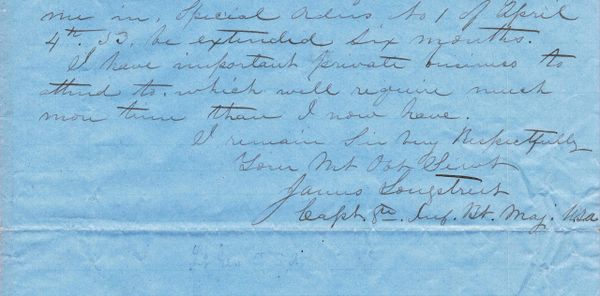 me in, Special Orders, No 1 of April
4th. 53, be extended six months.
I have important private business to
attend to, which will require much
more time than I now have.
I remain Sir Very Respectfully
Your Mt Obt Servt
James Longstreet
Capt. 8th. Inf. Bt. Maj. USA